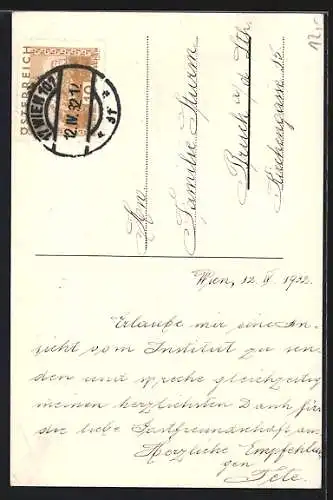 12.-
ÖSTERREICH
10
WIEN 101
12.IV.32.12
An
Familie Sturm
Bruck a/d Lth.
Wien, 12. IV. 1932.
Erlaube mir eine An-
sicht vom Institut zu sen-
den und spreche gleichzeitig
meinen herzlichsten Dank für
die liebe Gastfreundschaft aus.
Herzliche Empfehlun
gen